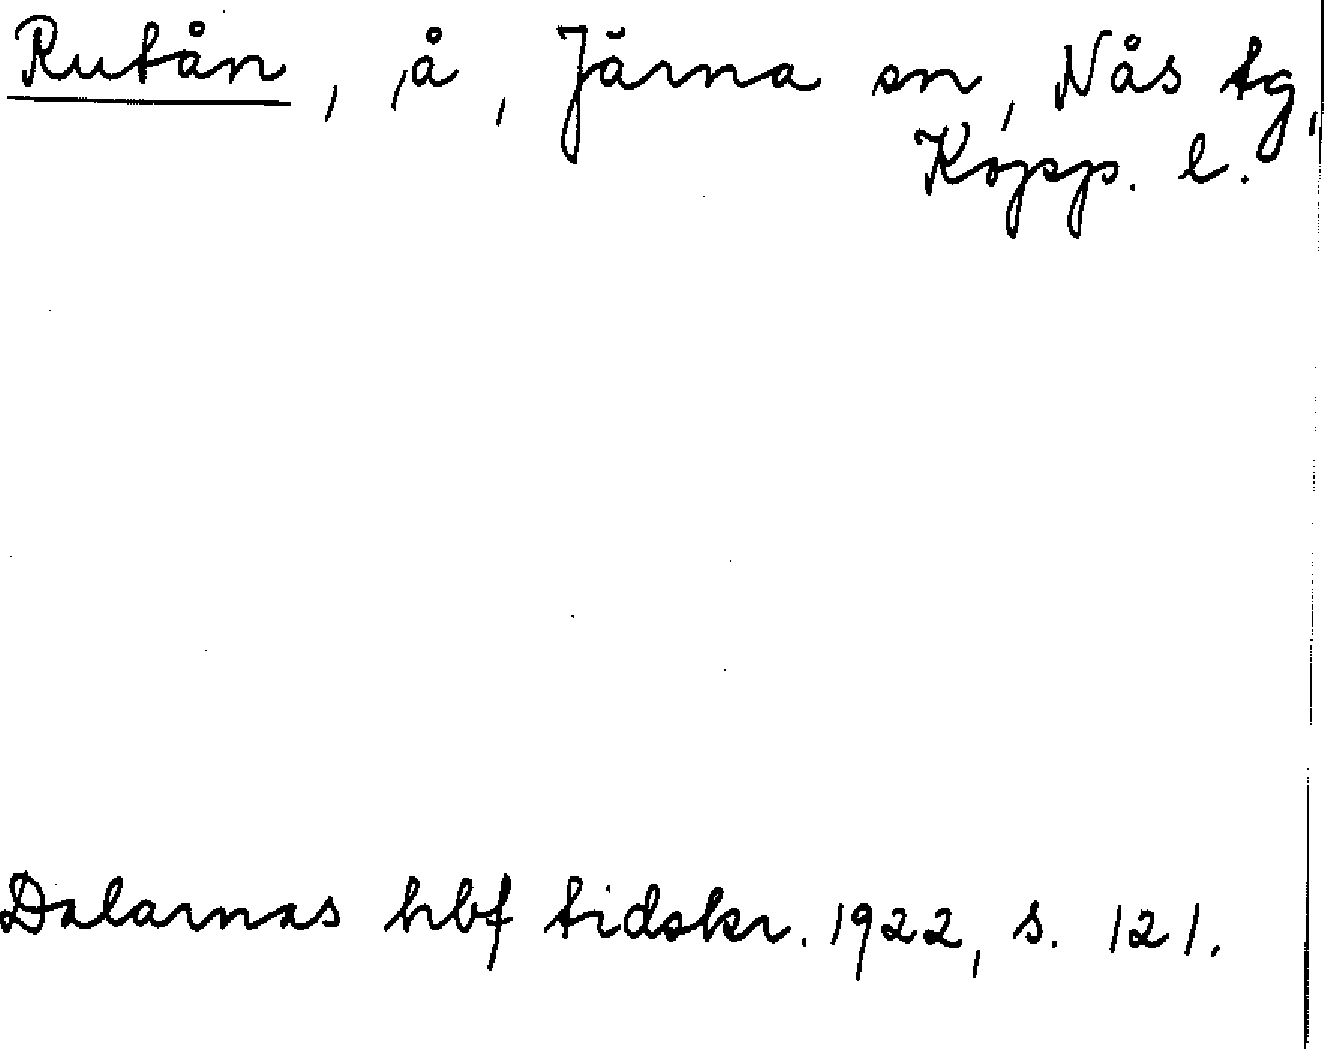 Rutån, å, Järna sn, Nås tg,
Kopp. l.
Dalarnas hbf tidskr. 1922, s. 121.